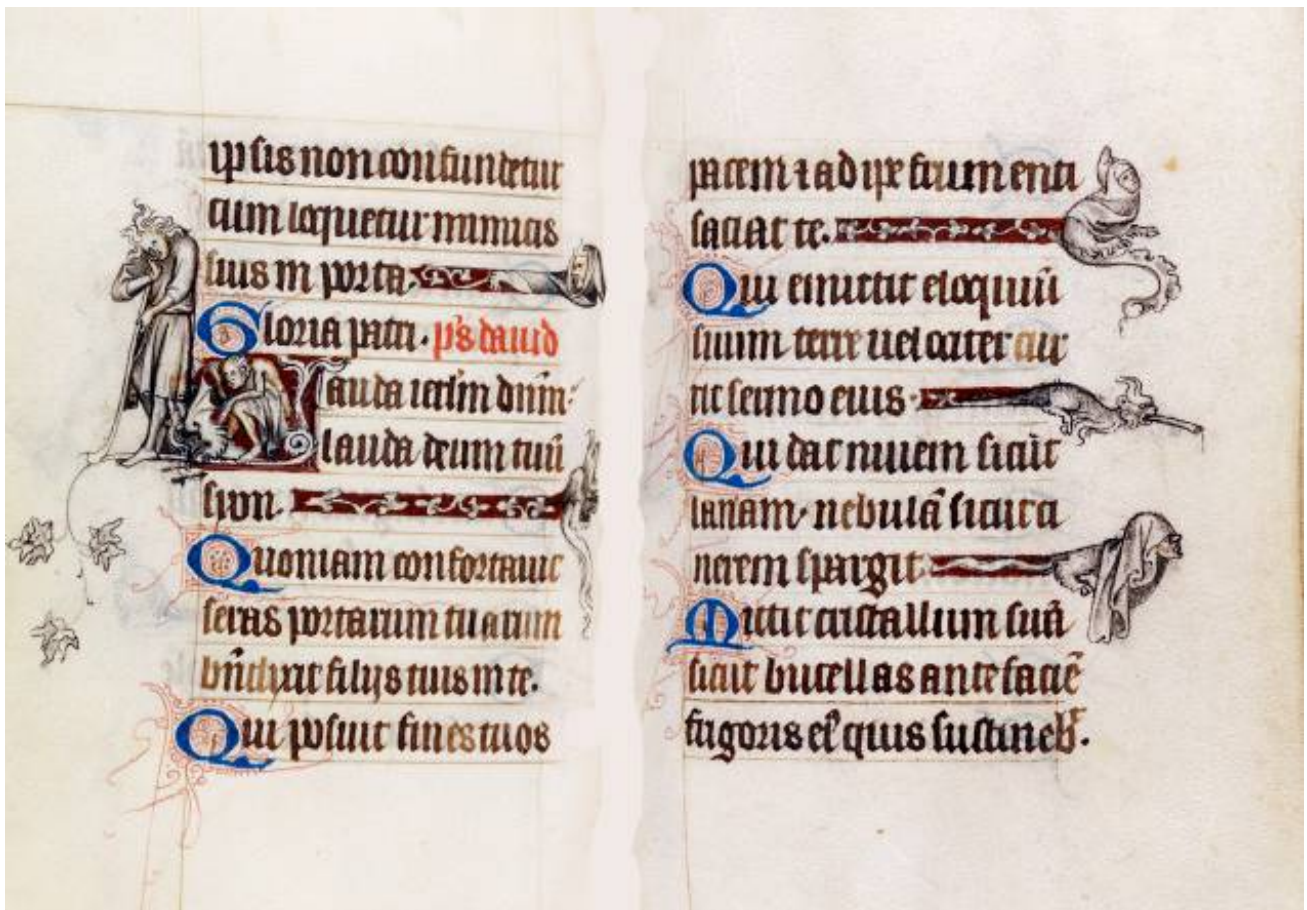 ipsis non confundetur
cum loquetur inimicis
suis in porta.
Gloria patri. ps dauid
Lauda ierlm dnm.
lauda deum tuū
sion.
Quoniam confortauit
seras portarum tuarum
bndixit filijs tuis in te.
Qui posuit fines tuos
pacem et adipe frumenti
saciat te.
Qui emittit eloquiū
suum terre uelociter cur
rit sermo eius.
Qui dat niuem sicut
lanam. nebulā sicut ci
nerem spargit.
Mittit cristallum suū
sicut bucellas ante faciē
frigoris ei' quis sustineb'.